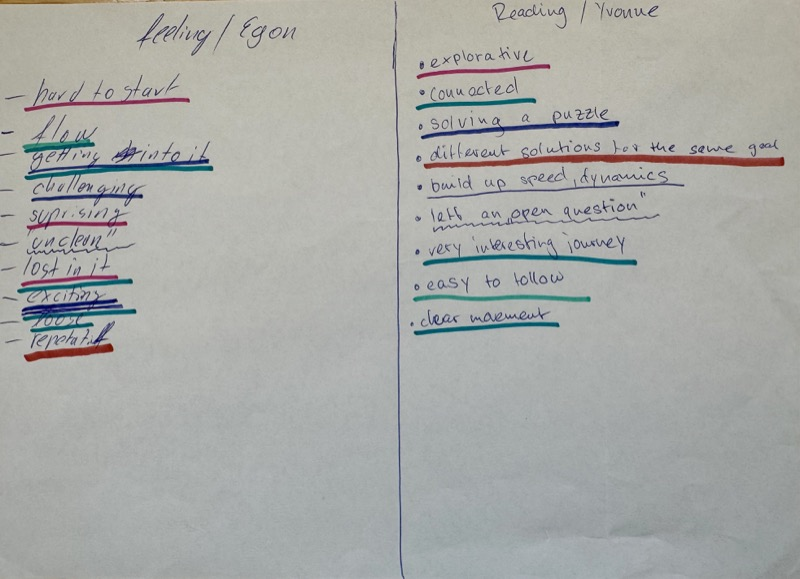 feeling / Egon
- hard to start
- flow
- getting into it
- challenging
- suprising
- "unclean"
- lost in it
- exciting
- loose
- repetatif
Reading / Yvonne
• explorative
• connected
• solving a puzzle
• different solutions for the same goal
• build up speed, dynamics
• left an „open question"
• very interesting journey
• easy to follow
• clear movement